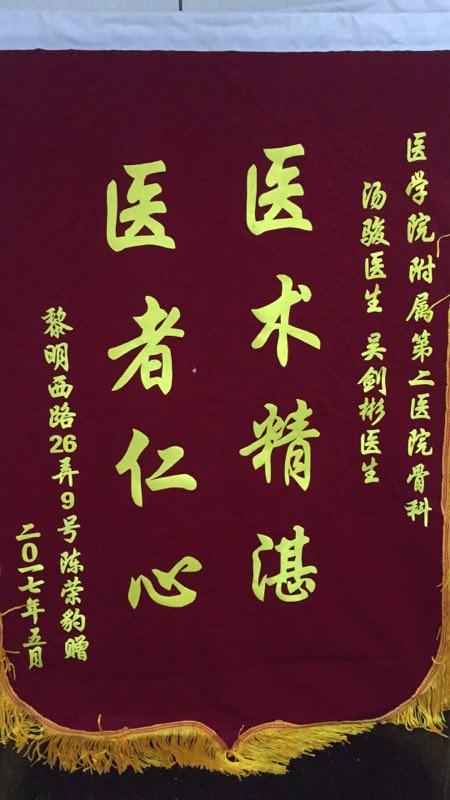 医学院附属第二医院骨科
汤骏医生 吴剑彬医生
医术精湛
医者仁心
黎明西路26弄9号陈荣豹赠
二〇一七年五月